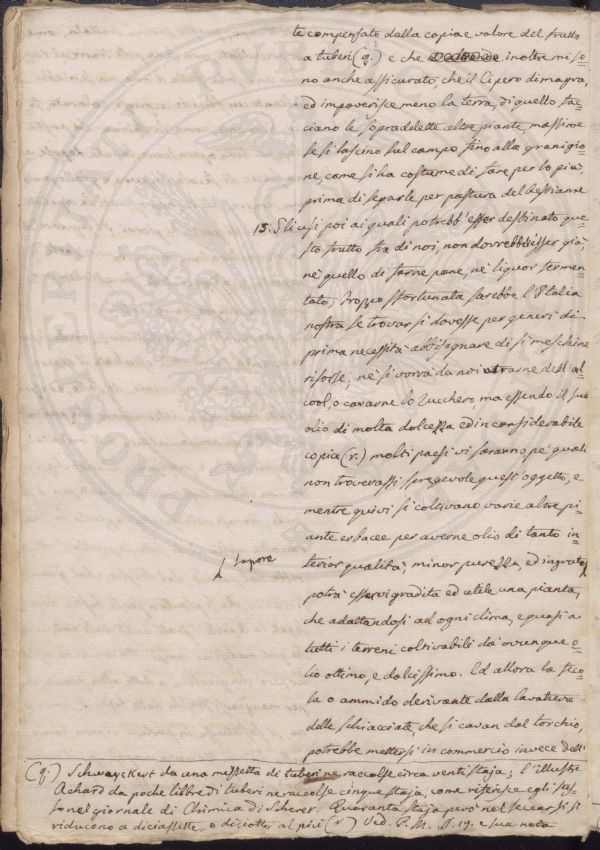 te compensato dalla copia e valore del frutto
a tuberi (q.) e che inoltre mi so=
no anche assicurato, che il Cipero dimagra,
ed impoverisce meno la terra, di quello fac=
ciano le sopradette altre piante, massime
se si lascino sul campo fino alla granigio=
ne, come si ha costume di fare per lo più,
prima di segarle per pastura del bestiame
15. Gli usi poi ai quali potrebb'esser destinato que=
sto frutto fra di noi, non dovrebb'esser già,
nè quello di farne pane, nè liquor fermen=
tato; troppo sfortunata sarebbe l'Italia
nostra se trovar si dovesse per generi di
prima necessità abbisognare di sì meschine
risorse, nè si vorrà da noi trarne dell'al=
cool, o cavarne lo zucchero, ma essendo il suo
olio di molta dolcezza ed in considerabile
copia (r.) molti paesi vi saranno pe' quali
non troverassi spregevole quest'oggetto, e
mentre quivi si coltivano varie altre pi=
ante erbacee per averne olio di tanto in=
ferior qualità, minor purezza, ed ingrato
sapore
potrà esservi gradita ed utile una pianta,
che adattandosi ad ogni clima, e quasi a
tutti i terreni coltivabili dà ovunque o=
lio ottimo, e dolcissimo. Ed allora la feco=
la o ammido derivante dalla lavatura
delle schiacciate, che si cavan dal torchio,
potrebbe mettersi in commercio invece dell'
(q.) Schwayckert da una mezzetta di tuberi ne raccolse circa venti staja; l'illustre
Achard da poche libbre di tuberi ne raccolse cinque staja, come riferisce egli stes=
so nel giornale di Chimica di Scherer. Quaranta staja però nel seccarsi si
riducono a diciassette, o diciotto al più (r.) Ved. P. M. N. 19. e sua nota